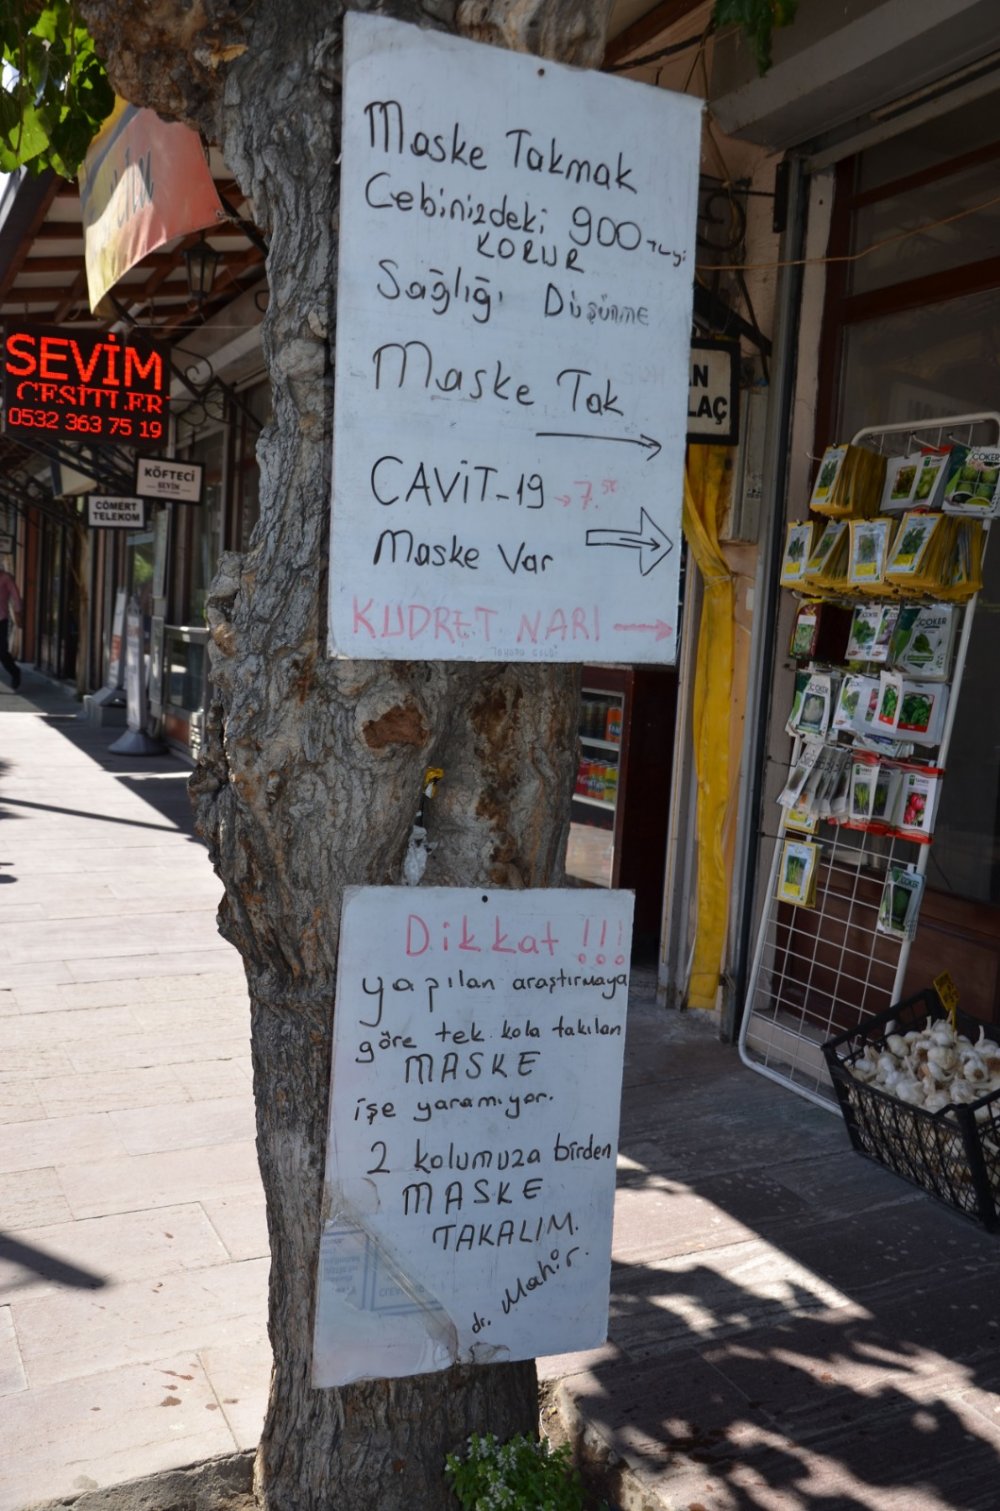 Maske Takmak
Cebinizdeki 900 TL yi
KORUR
Sağlığı Düşünme
Maske Tak
CAVİT-19 → 7.50
Maske Var
KUDRET NARI
Dikkat !!!
yapılan araştırmaya
göre tek kola takılan
MASKE
işe yaramıyor.
2 kolumuza birden
MASKE
TAKALIM.
dr. Mahir.
SEVİM
ÇEŞİTLER
0532 363 75 19
KÖFTECİ
SEVİN
CÖMERT
TELEKOM
AN
LAÇ
COKER
COKER
COKER